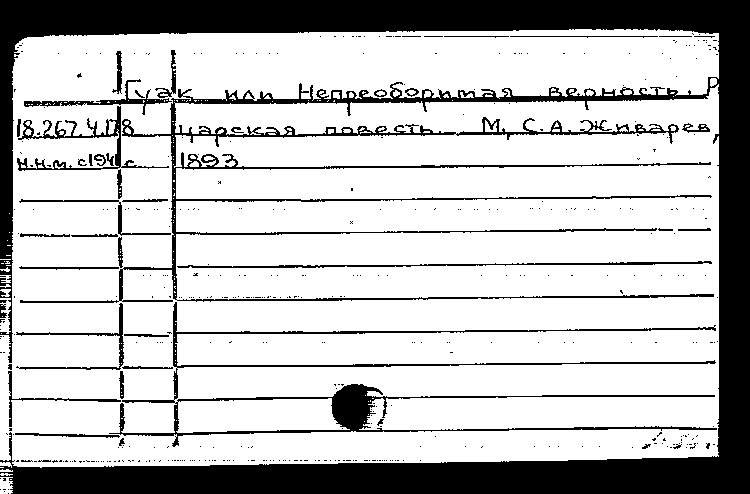 Гуак или Непреоборимая верность. Р
18.267.4.178 царская повесть. М., С.А. Живарев,
н.н.м. 1893.